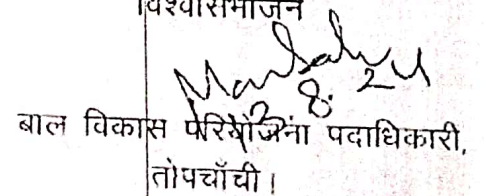 विश्वासभाजन
8.24
बाल विकास परियोजना पदाधिकारी,
तोपचाँची।